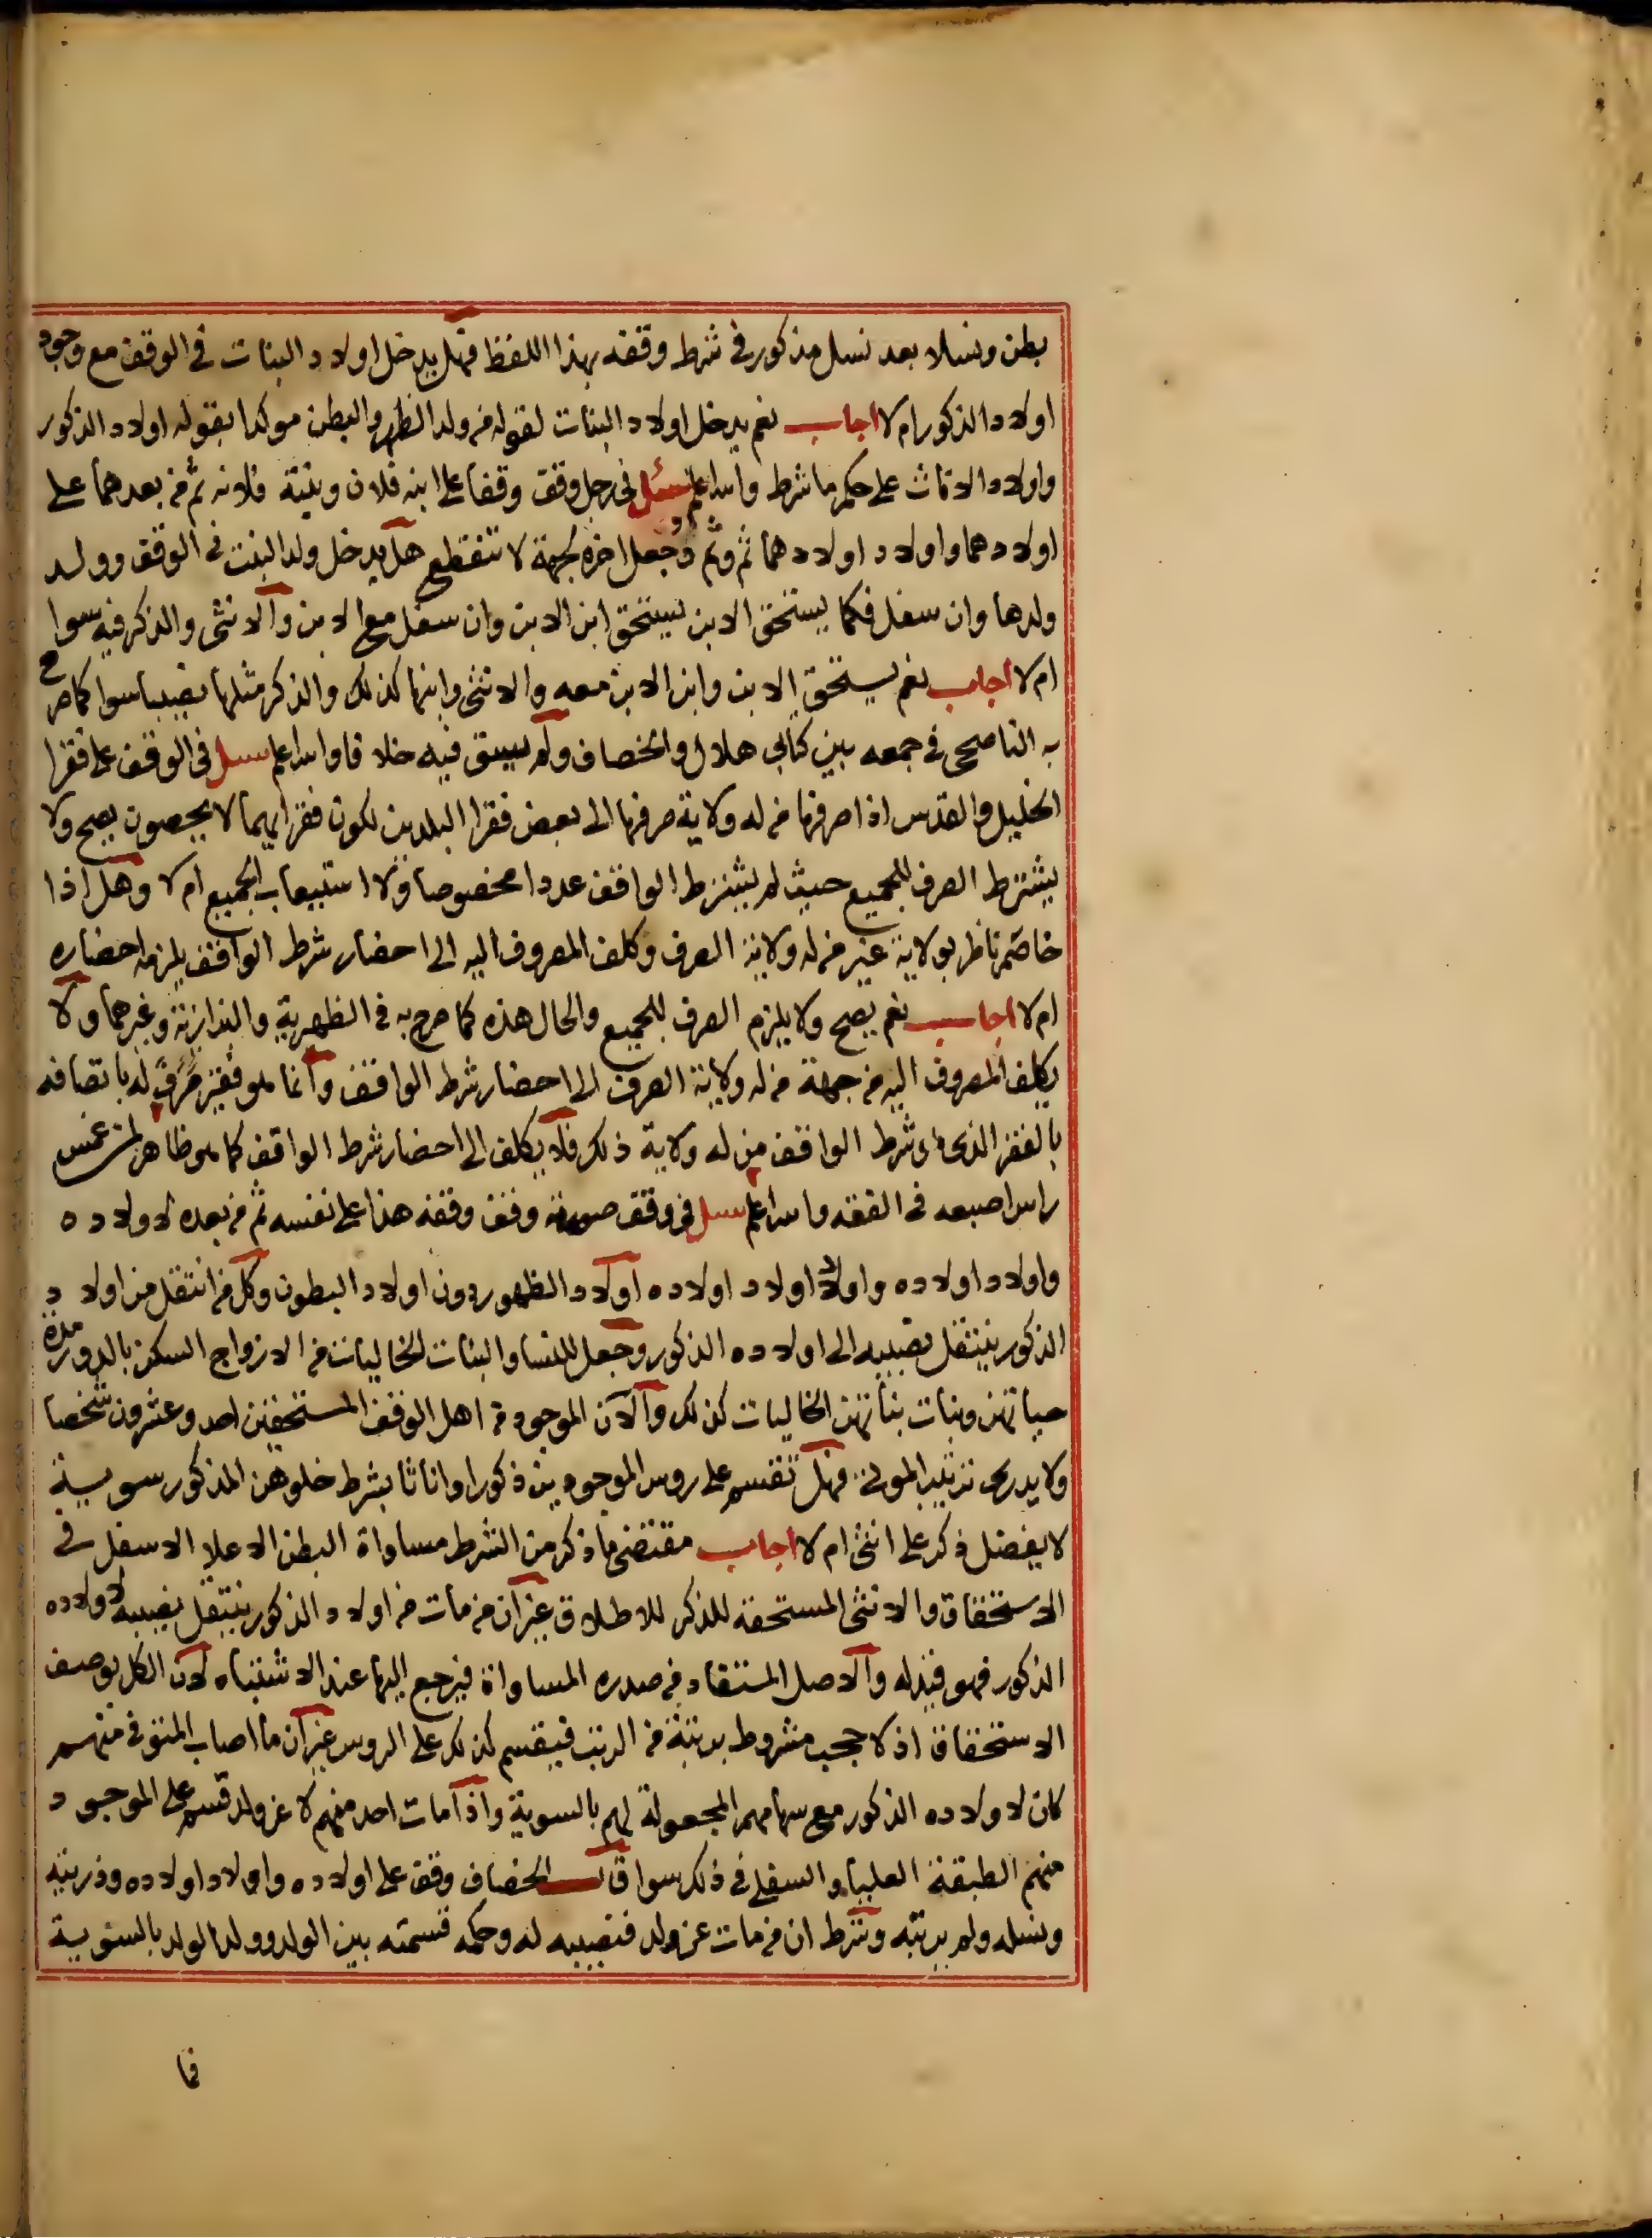 بطن ونسلا بعد نسل مذكور في شرط وقفه بهذا اللفظ فهل يدخل اولاد البنات في الوقف مع وجود
اولاد الذكور ام لا اجاب نعم يدخل اولاد البنات لقوله من ولد الظهر والبطن موكدا بقوله اولاد الذكور
واولاد الاناث على حكم ما شرط والله اعلم سئل في رجل وقف وقفا على ابنه فلان وبنته فلانه ثم من بعدهما على
اولادهما واولاد اولادهما ثم وثم وجعل اخره لجهة لا تنقطع هل يدخل ولد البنت في الوقف وولد
ولدها وان سفل فكما يستحق الابن يستحق ابن الابن وان سفل مع الابن والانثى والذكر فيه سوا
ام لا اجاب نعم يستحق الابن وابن الابن معه والانثى وابنها كذلك والذكر مثلها نصيبا سوا كما صرح
به الناصحي في جمعه بين كتابي هلال والخصاف ولم يسق فيه خلافا والله اعلم سئل في الوقف على فقرا
الخليل والقدس اذا صرفها من له ولاية صرفها الى بعض فقرا البلدين لكون فقرايهما لا يحصون يصح ولا
يشترط الصرف للجميع حيث لم يشترط الواقف عددا مخصوصا ولا استيعاب الجميع ام لا وهل اذا
خاصم ناظر بولاية غير من له ولاية الصرف وكلف المصروف اليه الى احضار شرط الواقف يلزمه احضاره
ام لا اجاب نعم يصح ولا يلزم الصرف للجميع والحال هذه كما صرح به في الظهيرية والبزازية وغيرهما ولا
يكلف المصروف اليه من جهة من له ولاية الصرف الى احضار شرط الواقف وانما هو فقير صرف له باتصافه
بالفقر الذي هو شرط الواقف من له ولاية ذلك فلا يكلف الى احضار شرط الواقف كما هو ظاهر لمن غمس
راس اصبعه في الفقه والله اعلم سئل في وقف صورته وقف وقفه هذا على نفسه ثم من بعده لاولاده
واولاد اولاده واولاد اولاد اولاده اولاد الظهور دون اولاد البطون وكل من انتقل من اولاد
الذكور ينتقل نصيبه الى اولاده الذكور وجعل للنسا والبنات الخاليات من الازواج السكن بالدور مدة
حياتهن وبنات بناتهن الخاليات كذلك والآن الموجود من اهل الوقف المستحقين احد وعشرون شخصا
ولا يدرى ترتيب الموتى فهل تقسم على روس الموجودين ذكورا واناثا بشرط خلوهن المذكور سوية
لا يفضل ذكر على انثى ام لا اجاب مقتضى ما ذكر من الشرط مساواة البطن الاعلا الاسفل في
الاستحقاق والانثى المستحقه للذكر للاطلاق غير ان من مات من اولاد الذكور ينتقل نصيبه لاولاده
الذكور فهو قيد له والاصل المستفاد من صدره المساواة فيرجع اليها عند الاشتباه لان الكل بوصف
الاستحقاق اذ لا حجب مشروط برتبة من الرتب فيقسم كذلك على الروس غير ان ما اصاب المتوفى منهم
كان لاولاده الذكور مع سهامهم المجعولة لهم بالسوية واذا مات احد منهم لا عن ولد قسم على الموجود
منهم الطبقة العليا والسفلى في ذلك سوا قال الخصاف وقف على اولاده واولاد اولاده وذريته
ونسله ولم يرتبه وشرط ان من مات عن ولد فنصيبه له وحكمه قسمته بين الولد وولد الولد بالسوية
فما